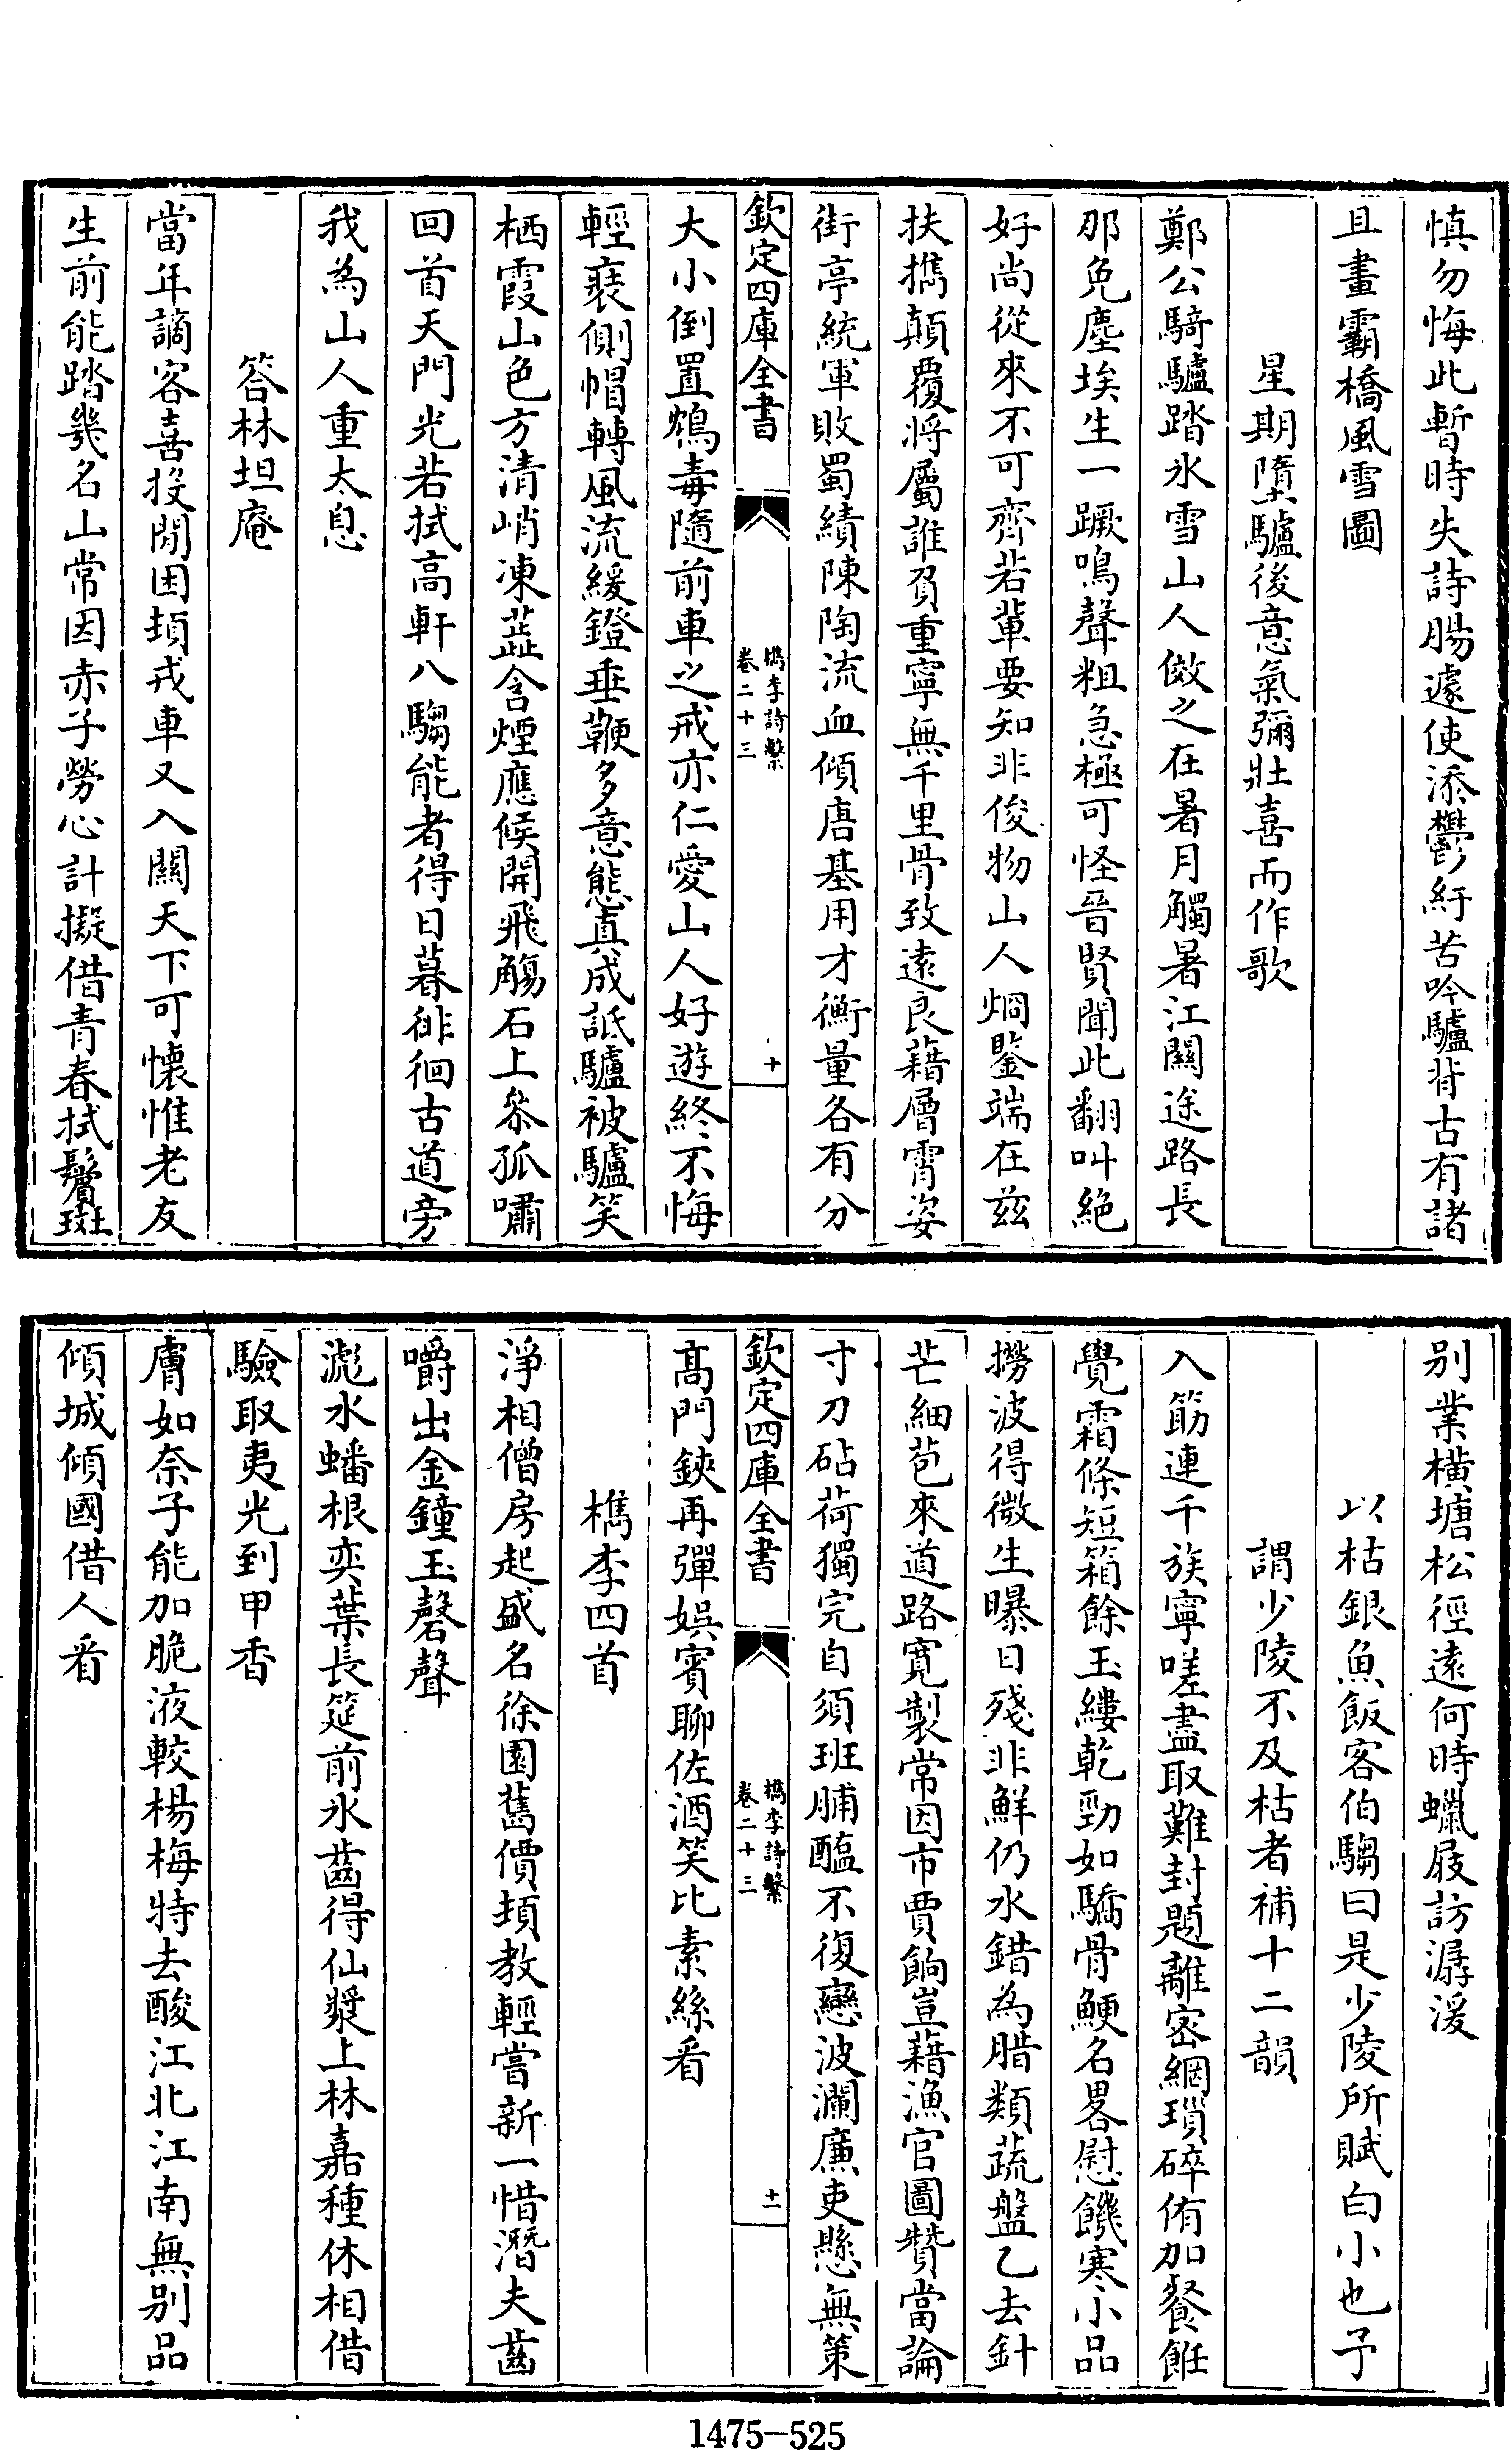 慎勿悔此暫時失詩腸遽使添鬱紆苦吟驢背古有諸
且畫霸橋風雪圖
星期墮驢後意氣彌壯喜而作歌
鄭公騎驢踏氷雪山人傚之在暑月觸暑江關途路長
那免塵埃生一蹶鳴聲粗急極可怪晉賢聞此翻叫絶
好尚從來不可齊若輩要知非俊物山人烱鑒端在兹
扶攜顛覆將屬誰負重寧無千里骨致遠良藉層霄姿
街亭統軍敗蜀績陳陶流血傾唐基用才衡量各有分
欽定四庫全書
檇李詩繫
卷二十三
十
大小倒置鴆毒隨前車之戒亦仁愛山人好遊終不悔
輕裘側帽轉風流緩鐙垂鞭多意態真成詆驢被驢笑
栖霞山色方清峭凍蕋含煙應候開飛觴石上叅孤嘯
回首天門光若拭高軒八騶能者得日暮徘徊古道旁
我為山人重太息
答林坦庵
當年謫客喜投閒困頓戎車又入關天下可懷惟老友
生前能踏幾名山常因赤子勞心計擬借青春拭鬢斑
别業横塘松徑遠何時蠟屐訪潺湲
以枯銀魚飯客伯騶曰是少陵所賦白小也予
謂少陵不及枯者補十二韻
入筯連千族寧嗟盡取難封題離宻網瑣碎侑加餐飪
覺霜條短箱餘玉縷乾勁如驕骨鯁名畧慰饑寒小品
撈波得微生曝日殘非鮮仍水錯為腊類蔬盤乙去針
芒細苞來道路寛製常因市賈餉豈藉漁官圖贊當論
寸刀砧荷獨完自須班脯醢不復戀波瀾亷吏懸無策
欽定四庫全書
檇李詩繫
卷二十三
十一
髙門鋏再彈娯賓聊佐酒笑比素絲看
檇李四首
淨相僧房起盛名徐園舊價頓教輕嘗新一惜潛夫齒
嚼出金鐘玉磬聲
滮水蟠根奕葉長筵前氷齒得仙漿上林嘉種休相借
驗取夷光到甲香
膚如奈子能加脆液較楊梅特去酸江北江南無别品
傾城傾國借人看
1475—525